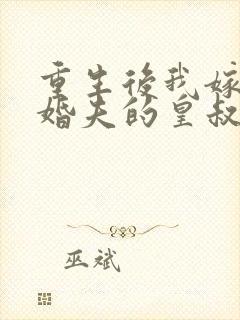 重生後我嫁
婚夫的皇叔
巫斌